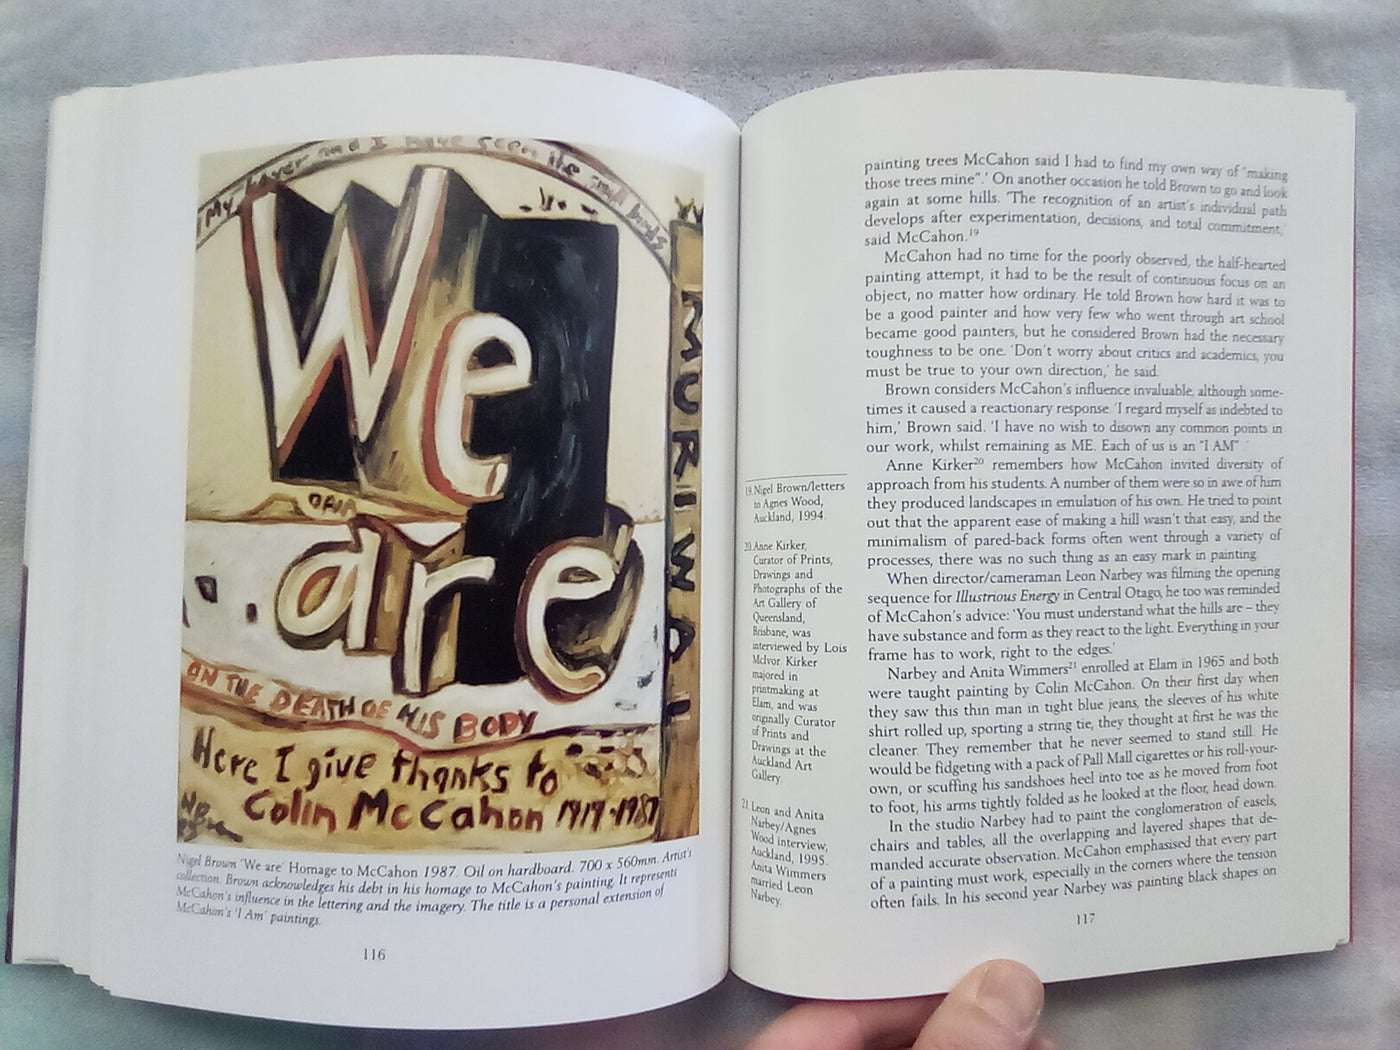 My lover and I have seen the soul birds
We
are
MURIWAI
ON THE DEATH OF HIS BODY
Here I give thanks to
Colin McCahon 1919-1987
Nigel Brown 'We are' Homage to McCahon 1987. Oil on hardboard. 700 x 560mm. Artist's
collection. Brown acknowledges his debt in his homage to McCahon's painting. It represents
McCahon's influence in the lettering and the imagery. The title is a personal extension of
McCahon's 'I Am' paintings.
116
19. Nigel Brown/letters
to Agnes Wood,
Auckland, 1994.
20. Anne Kirker,
Curator of Prints,
Drawings and
Photographs of the
Art Gallery of
Queensland,
Brisbane, was
interviewed by Lois
McIvor. Kirker
majored in
printmaking at
Elam, and was
originally Curator
of Prints and
Drawings at the
Auckland Art
Gallery.
21. Leon and Anita
Narbey/Agnes
Wood interview,
Auckland, 1995.
Anita Wimmers
married Leon
Narbey.
painting trees McCahon said I had to find my own way of "making
those trees mine".' On another occasion he told Brown to go and look
again at some hills. 'The recognition of an artist's individual path
develops after experimentation, decisions, and total commitment,'
said McCahon.¹⁹
McCahon had no time for the poorly observed, the half-hearted
painting attempt, it had to be the result of continuous focus on an
object, no matter how ordinary. He told Brown how hard it was to
be a good painter and how very few who went through art school
became good painters, but he considered Brown had the necessary
toughness to be one. 'Don't worry about critics and academics, you
must be true to your own direction,' he said.
Brown considers McCahon's influence invaluable, although some-
times it caused a reactionary response. 'I regard myself as indebted to
him,' Brown said. 'I have no wish to disown any common points in
our work, whilst remaining as ME. Each of us is an "I AM".'
Anne Kirker²⁰ remembers how McCahon invited diversity of
approach from his students. A number of them were so in awe of him
they produced landscapes in emulation of his own. He tried to point
out that the apparent ease of making a hill wasn't that easy, and the
minimalism of pared-back forms often went through a variety of
processes, there was no such thing as an easy mark in painting.
When director/cameraman Leon Narbey was filming the opening
sequence for Illustrious Energy in Central Otago, he too was reminded
of McCahon's advice: 'You must understand what the hills are – they
have substance and form as they react to the light. Everything in your
frame has to work, right to the edges.'
Narbey and Anita Wimmers²¹ enrolled at Elam in 1965 and both
were taught painting by Colin McCahon. On their first day when
they saw this thin man in tight blue jeans, the sleeves of his white
shirt rolled up, sporting a string tie, they thought at first he was the
cleaner. They remember that he never seemed to stand still. He
would be fidgeting with a pack of Pall Mall cigarettes or his roll-your-
own, or scuffing his sandshoes heel into toe as he moved from foot
to foot, his arms tightly folded as he looked at the floor, head down.
In the studio Narbey had to paint the conglomeration of easels,
chairs and tables, all the overlapping and layered shapes that de-
manded accurate observation. McCahon emphasised that every part
of a painting must work, especially in the corners where the tension
often fails. In his second year Narbey was painting black shapes on
117